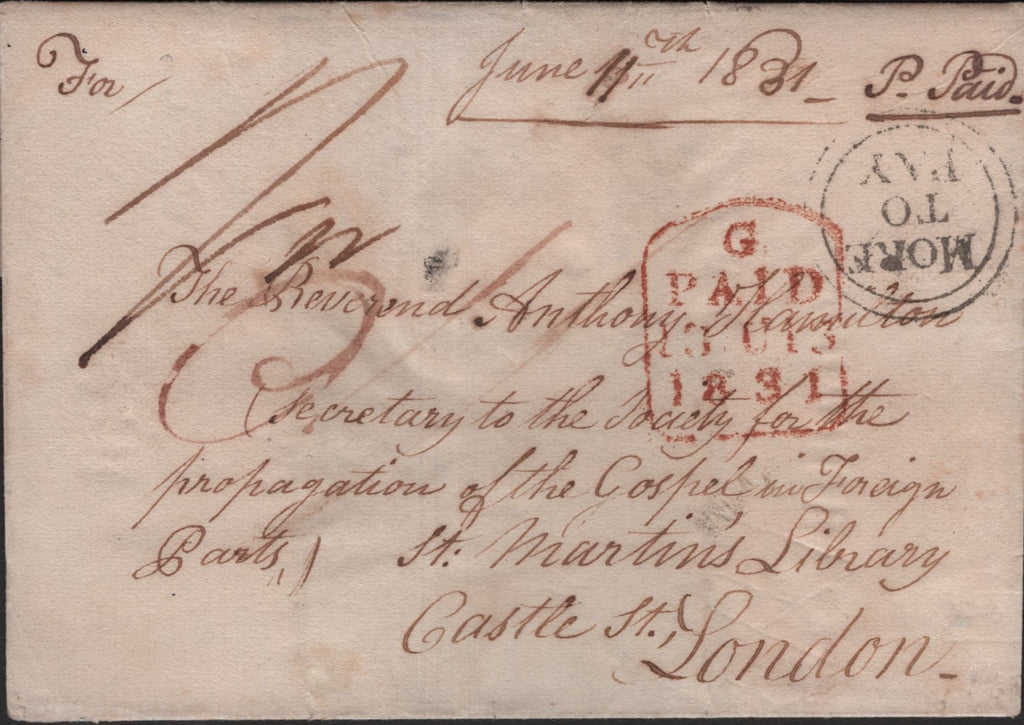 For
June 11th 1831
P. Paid.
MORE
TO
PAY
G
PAID
1831
The Reverend Anthony Hamilton
Secretary to the Society for the
propagation of the Gospel in Foreign
Parts,) St. Martin's Library
Castle St.,
London.